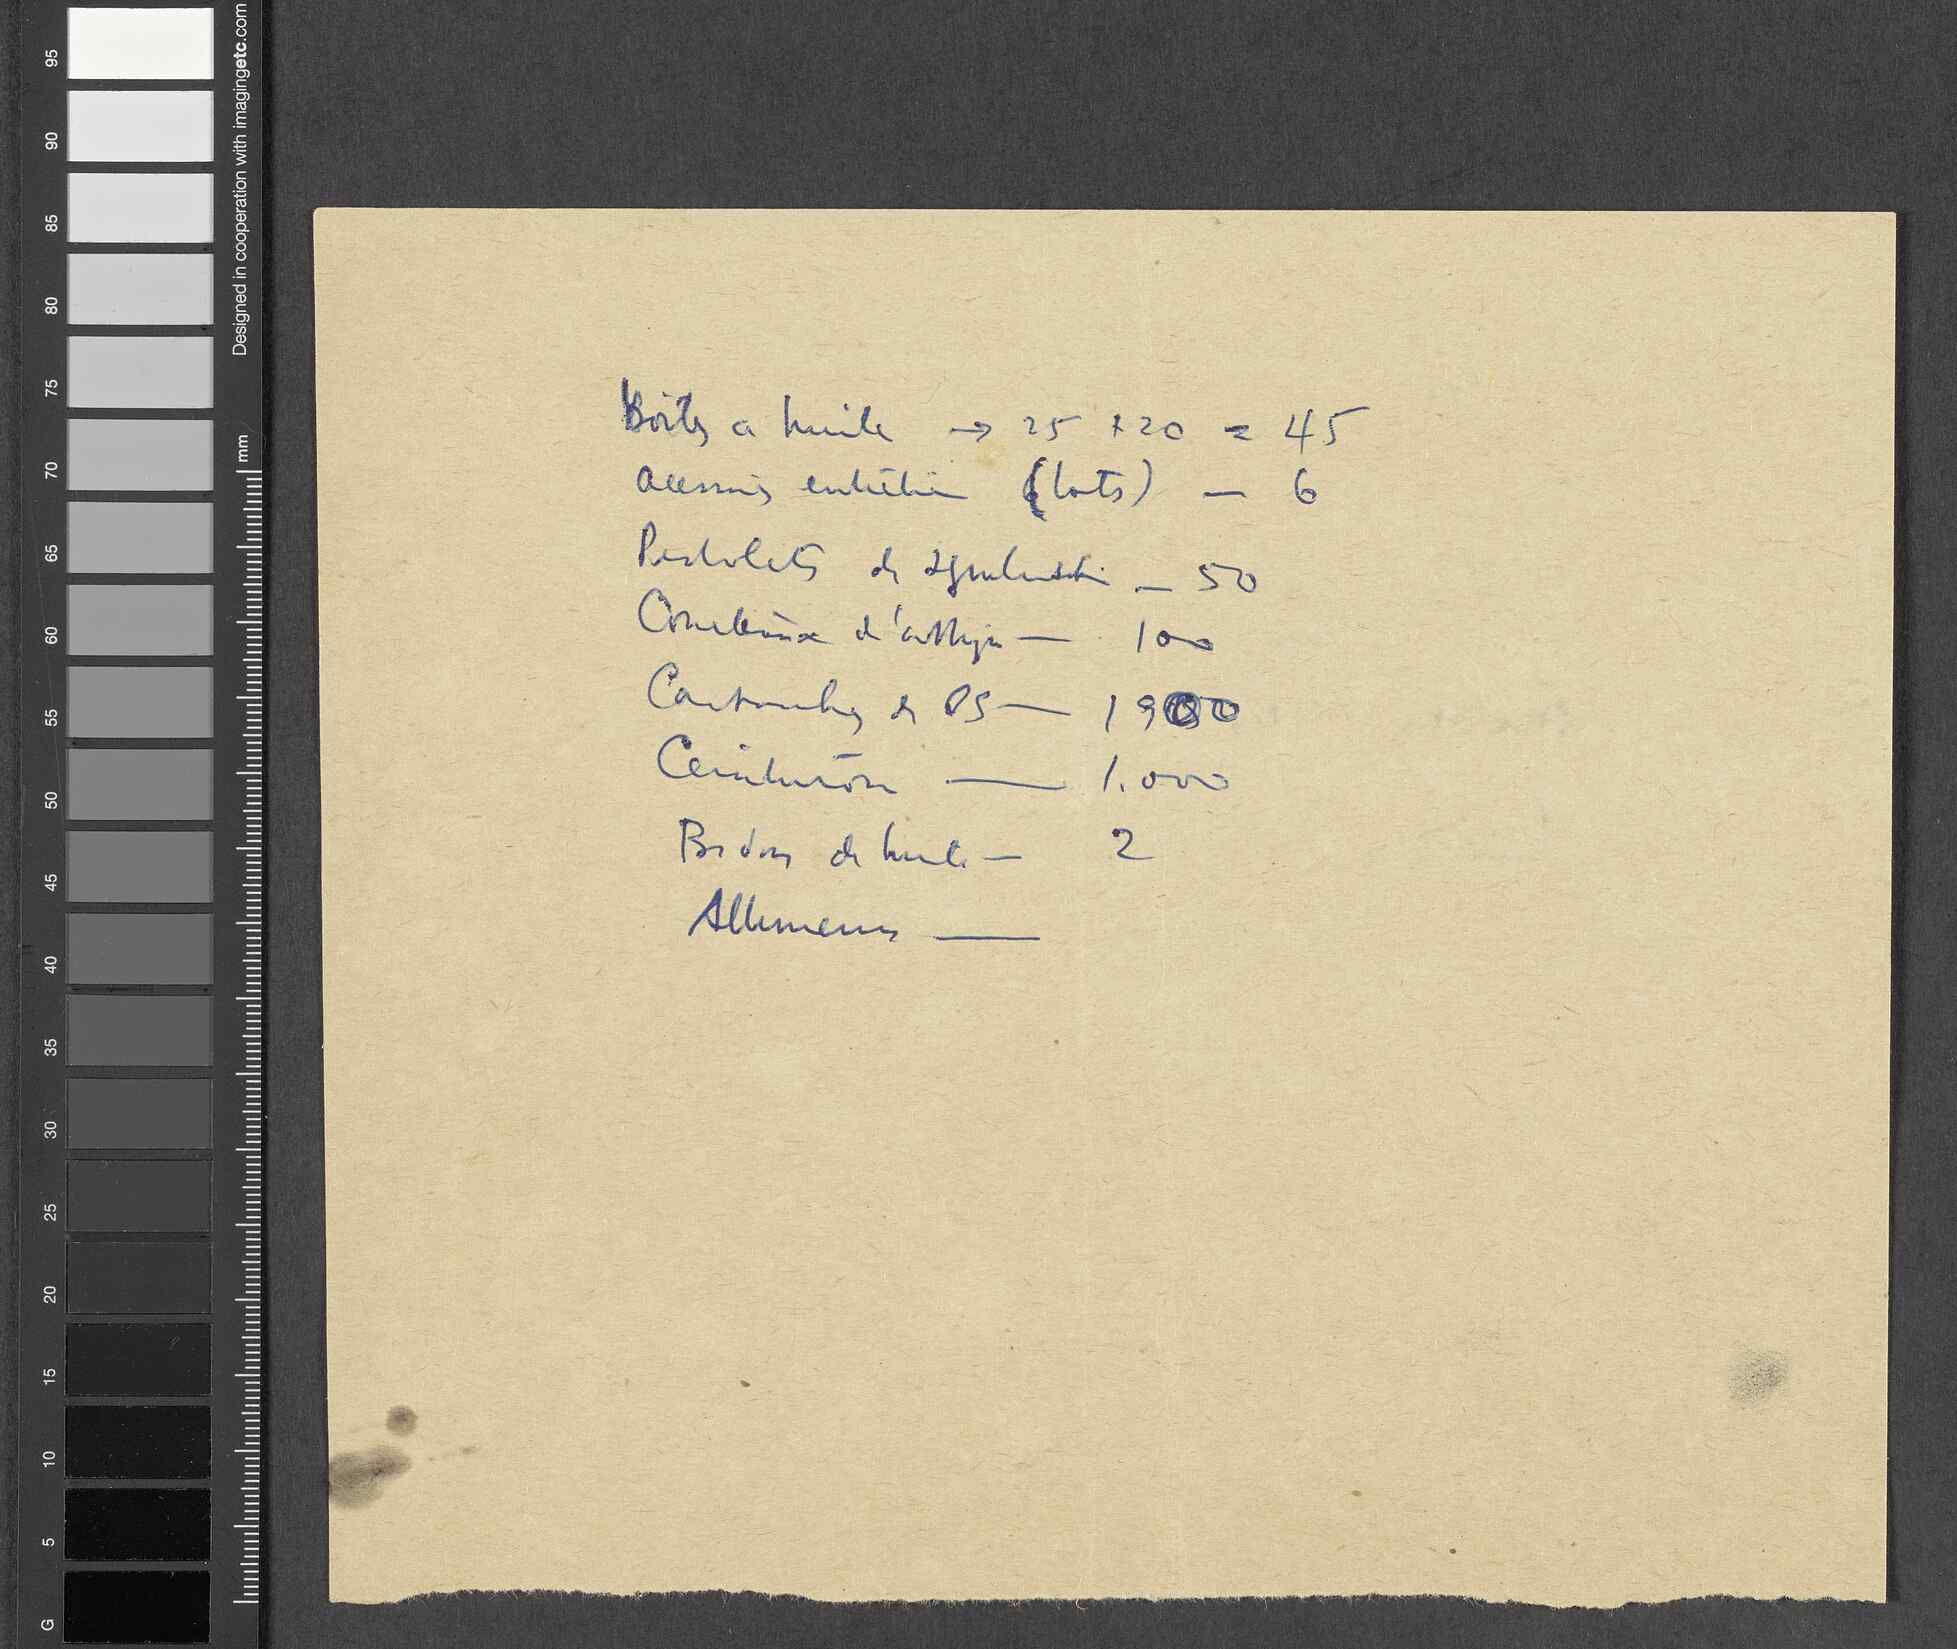 Boites a huile → 25 + 20 = 45
accessoires entretien (lots) — 6
Pistolets de signalisation — 50
d'attaque — 100
Cartouches de PS — 1900
Ceinturon — 1.000
Bidons de huile — 2
Allumeurs —
95
90
85
80
75
70
65
60
55
50
45
40
35
30
25
20
15
10
5
G
Designed in cooperation with imagingetc.com
mm